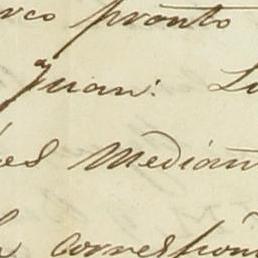 rco pronto
Juan: Lu
es Median
correspon